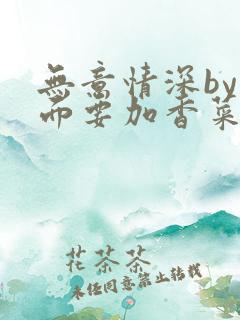 無意情深by
而要加香菜
花茶茶
未经同意禁止转载